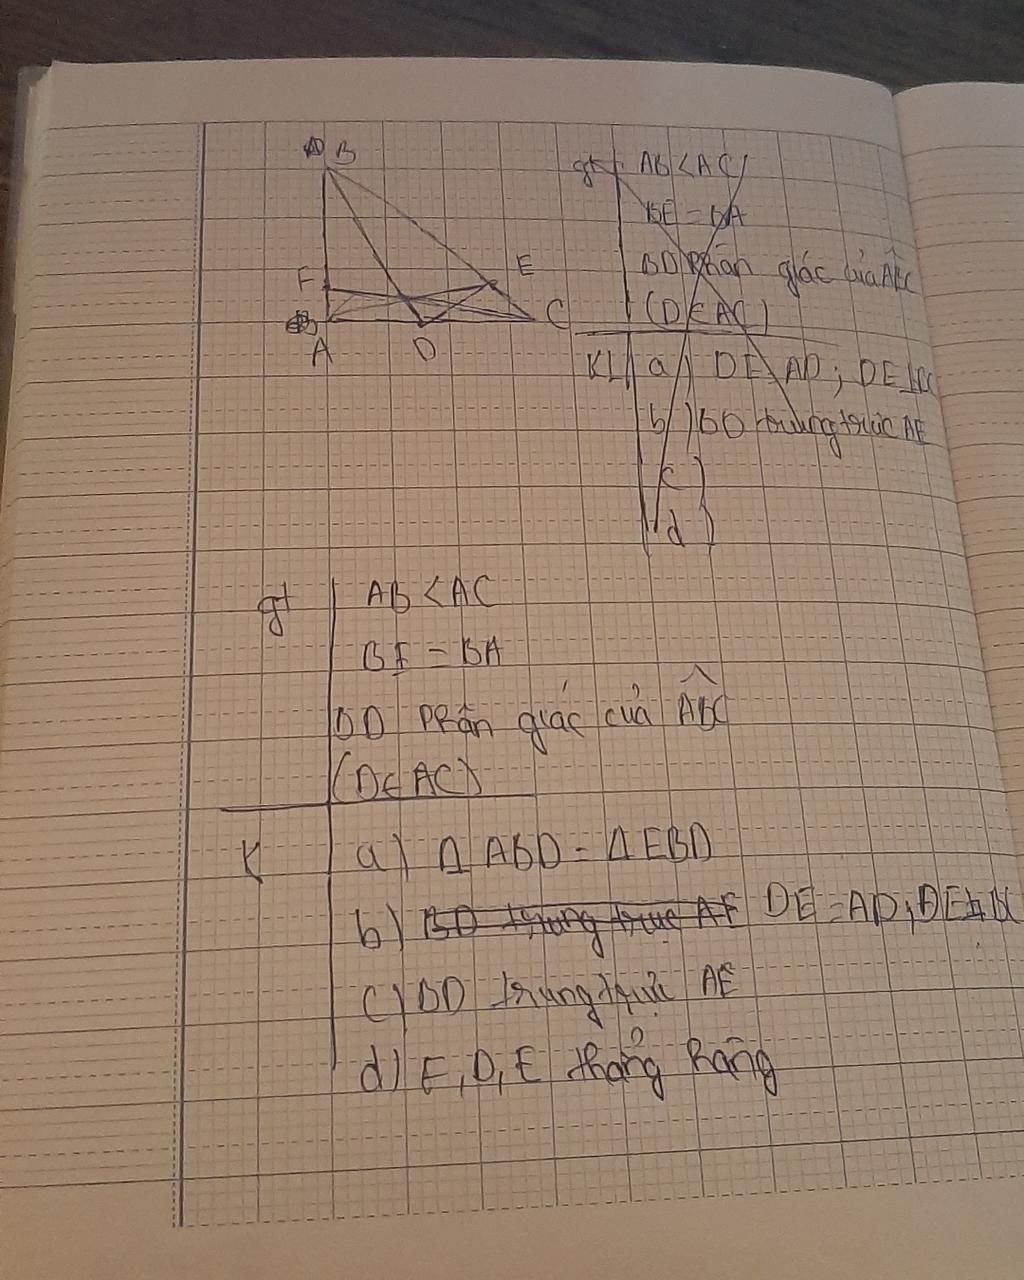 B
F
E
C
A
D
gt AB < AC
BE = BA
BD phân giác của ABC
(D ∈ AC)
KL a) DE = AD ; DE ⊥ BC
b) BD trung trực AE
c)
d)
gt AB < AC
BE = BA
BD phân giác của ABC
(D ∈ AC)
K a) Δ ABD = Δ EBD
b) BD trung trực AE DE = AD ; DE ⊥ BC
c) BD trung trực AE
d) F, D, E thẳng hàng